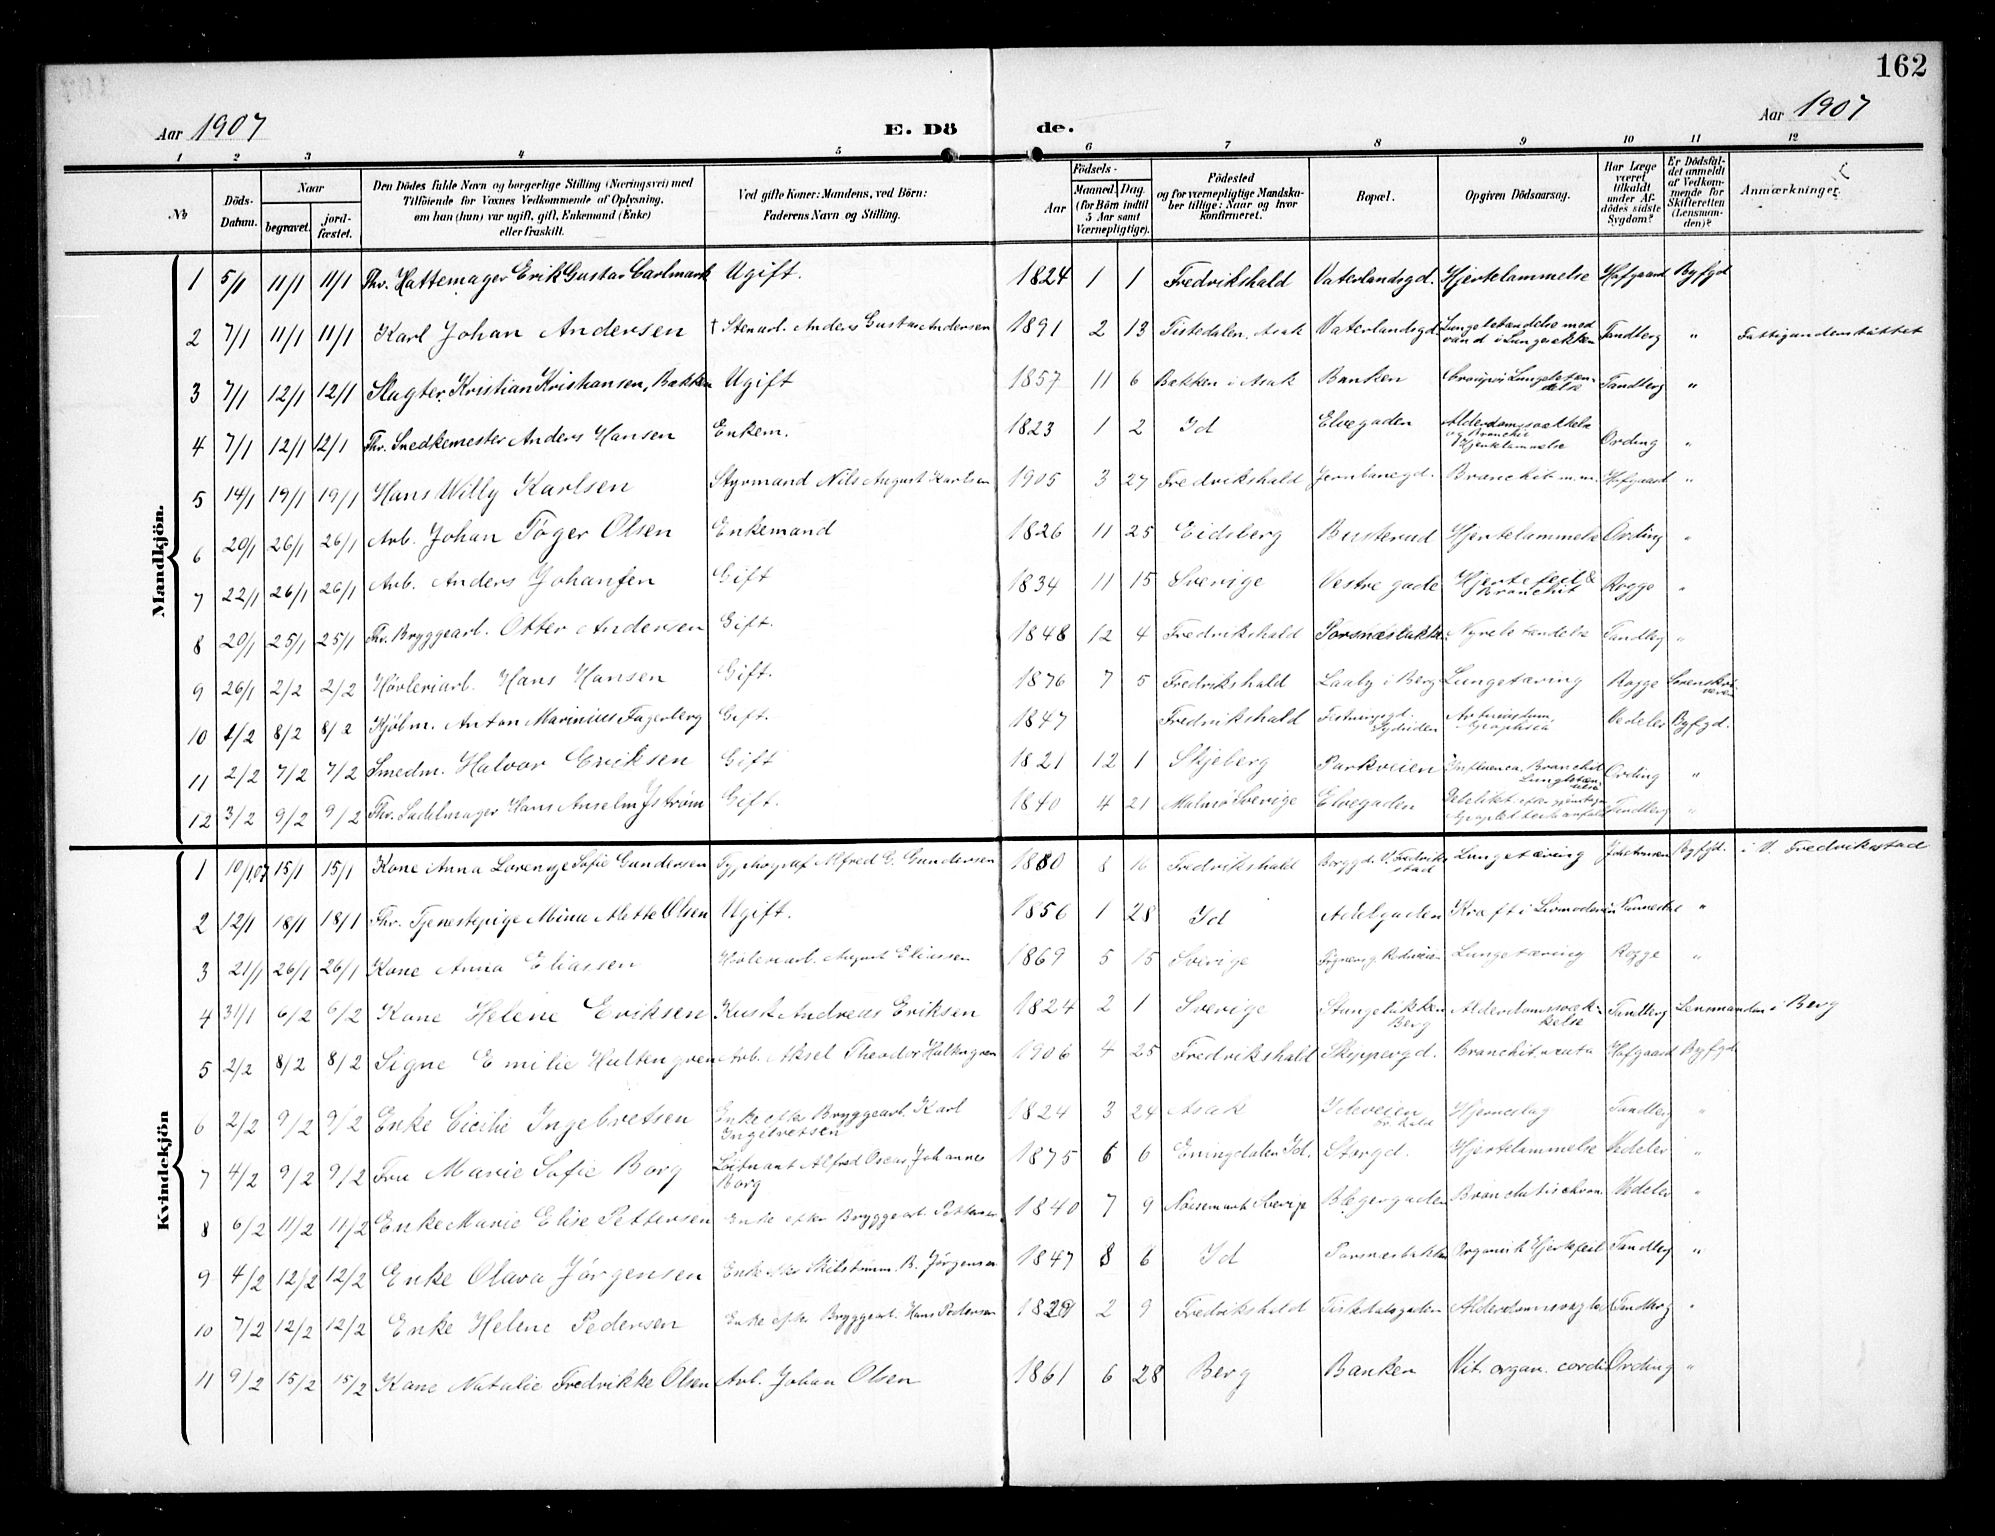 162
Aar 1907 E. Dö de. Aar 1907
1 2 3 4 5 6 7 8 9 10 11 12
No Döds-Datum. Naar begravet. jord-fæstet. Den Dödes fulde Navn og borgerlige Stilling (Næringsvei) med Tilföiende for Voxnes Vedkommende af Oplysning, om han (hun) var ugift, gift, Enkemand (Enke) eller fraskilt. Ved gifte Koner: Mandens, ved Börn: Faderens Navn og Stilling. Födsels- Aar Maaned Dag. (for Börn indtil 5 Aar samt Værnepligtige). Födested og for værnepligtige Mandska-ber tillige: Naar og hvor konfirmeret. Bopæl. Opgiven Dödsaarsag. Har Læge været tilkaldt under Af-dödes sidste Sygdom? Er Dödsfal-det anmeldt af Vedkom-mende for Skifteretten (Lensman-den)? Anmærkninger.
Mandkjön.
1 5/1 11/1 11/1 Fhv. Hattemager Erik Gustav Carlmark Ugift. 1824 1 1 Fredrikshald Vaterlandsgd. Hjertelammelse Hofgaard Byfgd
2 7/1 11/1 11/1 Karl Johan Andersen † Stenarb. Anders Gustav Andersen 1891 2 13 Tistedalen, Asak Vaterlandsgd. Lungebetændelse med vand i Lungesækken Tandberg " Fattigunderstøttet
3 7/1 12/1 12/1 Slagter Kristian Kristiansen, Bakken Ugift 1857 11 6 Bakken i Asak Banken Croupøs Lungebetæn-delse Tandberg "
4 7/1 12/1 12/1 Fhv. Snedkemester Anders Hansen Enkem. 1823 1 2 Id Elvegaden Alderdomssvækkelse og Bronchit Hjertelammelse Ording "
5 14/1 19/1 19/1 Hans Willy Karlsen Styrmand Nils August Karlsen 1905 3 27 Fredrikshald Jernbanegd. Bronchit m.m. Hofgaard "
6 20/1 26/1 26/1 Arb. Johan Tøger Olsen Enkemand 1826 11 25 Eidsberg Busterud Hjertelammelse Ording "
7 22/1 26/1 26/1 Arb. Anders Johansen Gift 1834 11 15 Sverige Vestre gade Hjertefeil & Bronchit Rogge "
8 20/1 25/1 25/1 Fhv. Bryggearb. Otter Andersen Gift. 1848 12 4 Fredrikshald Porsnæsbakken Nyrebetændelse Tandbg "
9 26/1 2/2 2/2 Høvleriarb. Hans Hansen Gift. 1876 7 5 Fredrikshald Laaby i Berg Lungetæring Rogge Sorenskri-veren
10 1/2 8/2 8/2 Kjøbm. Anton Marinius Fagerberg Gift. 1847 Fredrikshald Vedeler Byfgd.
11 2/2 7/2 7/2 Smedm. Halvor Eriksen Gift 1821 12 1 Skjeberg Parkveien Influenca, Bronchit Lungebetæn-delse Ording "
12 3/2 9/2 9/2 Fhv. Sadelmager Hans Anselm Gift. 1840 4 21 Malmø Sverige Elvegaden Tandberg "
Kvindekjön
1 10/1 07 15/1 15/1 Kone Anna Lorentze Sofie Gundersen Typhograf Alfred G. Gundersen 1880 8 16 Fredrikshald Borggd. V. Fredrik-stad Lungetæring Johannesen Byfgd. i V. Fredriksstad
2 12/1 18/1 18/1 Fhv. Tjenestepige Mina Mette Olsen Ugift. 1856 1 28 Id Adelgaden Kræft i Livmoderen "
3 21/1 26/1 26/1 Kone Anna Eliassen Høvleriarb. August Eliassen 1869 5 15 Sverige Lungetæring Rogge "
4 31/1 6/2 6/2 Kone Helene Eriksen Kusk Andreas Eriksen 1824 2 1 Sverige Stangeløkken Berg Alderdomssvæk-kelse Tandberg Lensmanden i Berg
5 2/2 8/2 8/2 Signe Emilie Hultengren Arb. Aksel Theodor Hultengren 1906 4 25 Fredrikshald Skippergd. Bronchit. acuta Hofgaard Byfgd
6 2/2 9/2 9/2 Enke Cicilie Ingebretsen Enke efter Bryggearb. Karl Ingebretsen 1824 3 24 Asak Ideveien Hjerneslag Tandberg "
7 4/2 9/2 9/2 Fru Marie Sofie Borg Løitnant Alfred Oscar Johannes Borg 1875 6 6 Enningdalen Id. Storgd. Hjertelammelse Vedeler "
8 6/2 11/2 11/2 Enke Marie Elise Pettersen Enke efter Bryggearb. Pettersen 1840 7 9 Sverige Bøgergaden Bronchitis chron. Vedeler "
9 4/2 12/2 12/2 Enke Olava Jørgensen Enke efter B. Jørgensen 1847 8 6 Id Porsnæsbakken Organisk Hjertefeil Tandbg "
10 7/2 12/2 12/2 Enke Helene Pedersen Enke efter Bryggearb. Hans Pedersen 1829 2 9 Fredrikshald Tistedalsgaden Tandberg "
11 9/2 15/2 15/2 Kone Natalie Fredrikke Olsen Arb. Johan Olsen 1861 6 28 Berg Banken Vit. organ. cordis Ording "